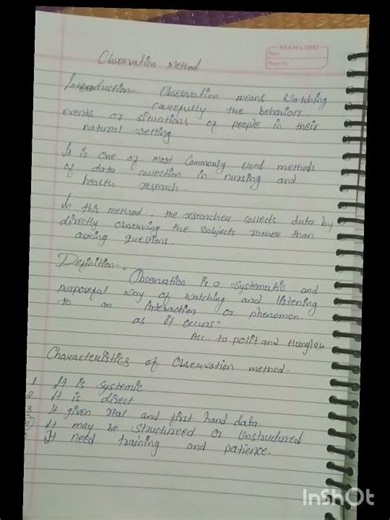 Observation Method
Introduction - Observation means Watching
carefully the behaviors
events or situations of people in their
natural setting
It is one of most commonly used methods
of data collection in nursing and
health research.
In this method, the researchers collects data by
directly observing the subjects rather than
asking questions
Definition -
"Observation is a systematic and
purposeful way of watching and listening
to an interaction or phenomenon
as it occurs"
Acc. to polit and Hungler
Characteristics of Observation method
1 It is systemic
2 It is direct
3 It given real and first hand data
It may be structured or Unstructured
It need training and patience.
InShOt